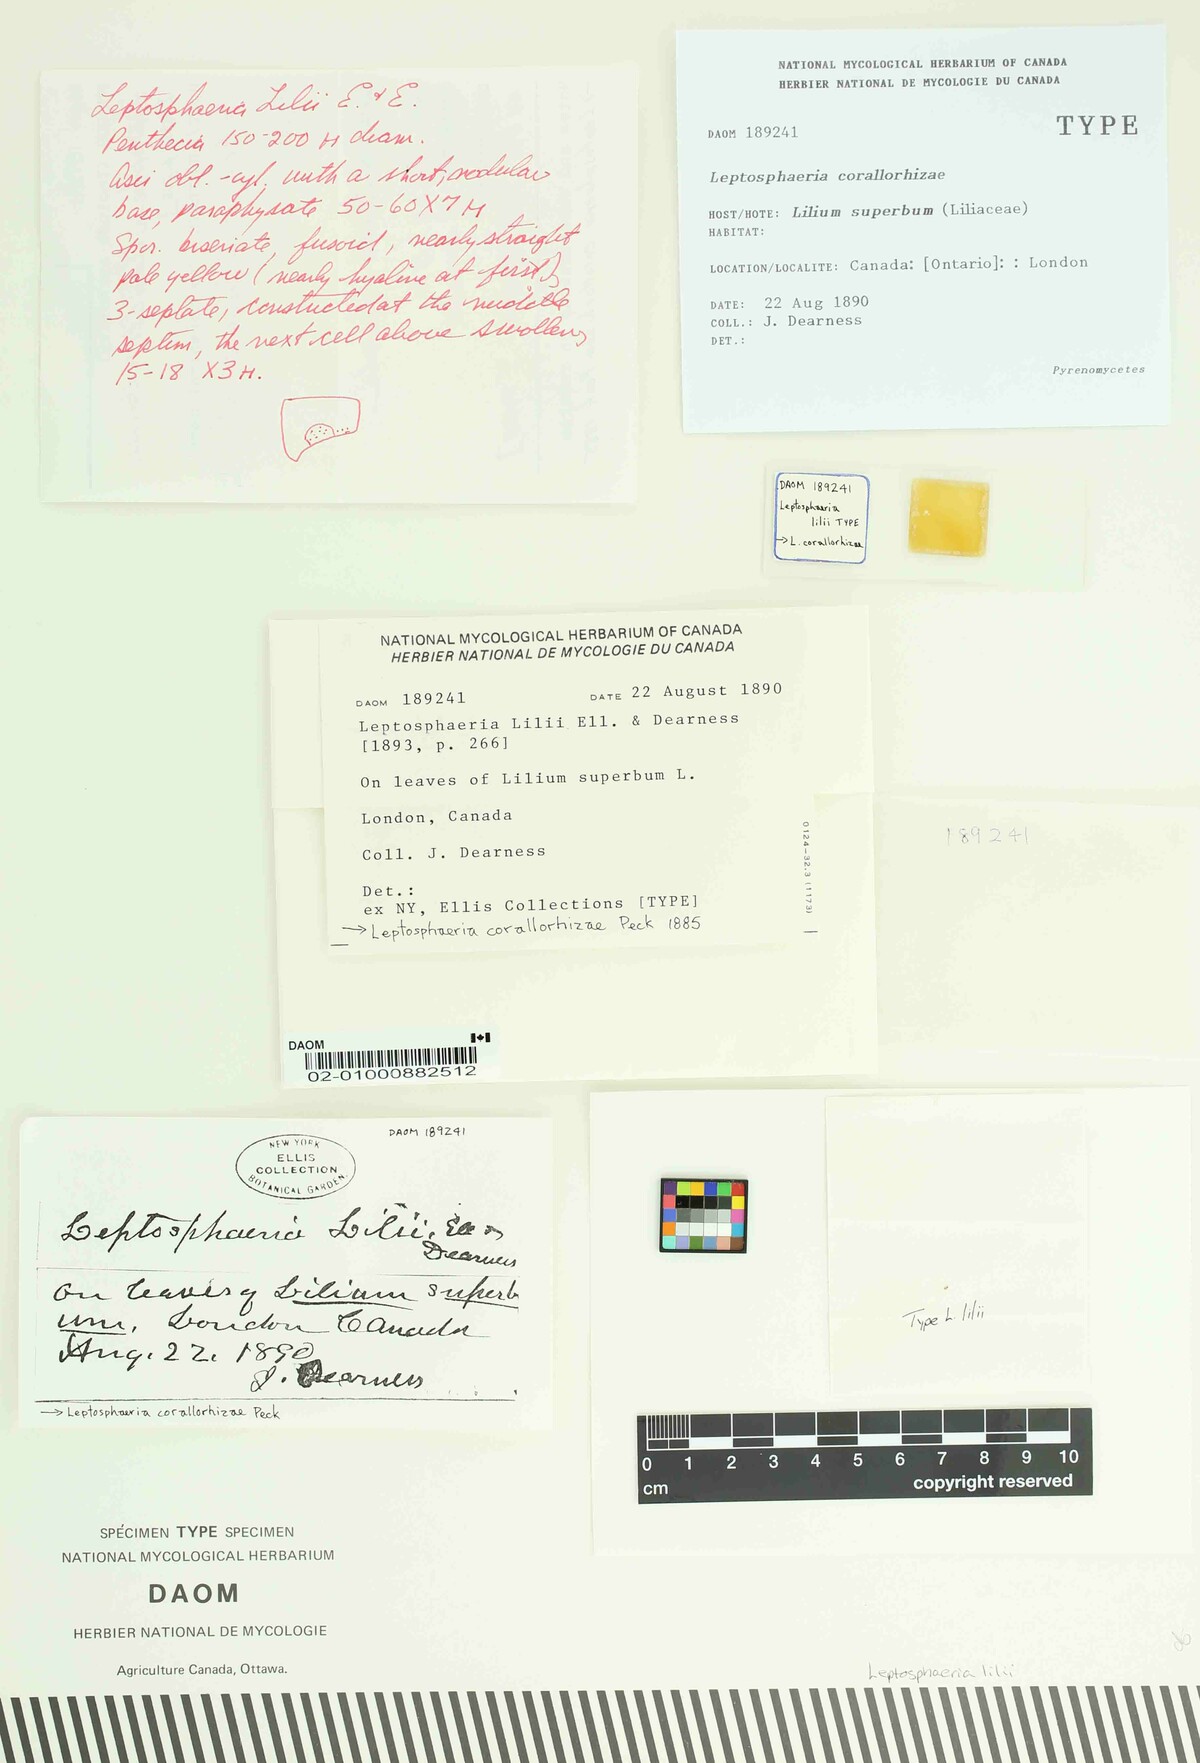 Leptosphaeria Lilii E. & E.
Perithecia 150-200 µ diam.
Asci obl.-cyl. with a short, nodular
base, paraphysate 50-60X7 µ
Spor. biseriate, fusoid, nearly straight
pale yellow (nearly hyaline at first),
3-septate, constricted at the middle
septum, the next cell above swollen,
15-18 X3 µ.
NATIONAL MYCOLOGICAL HERBARIUM OF CANADA
HERBIER NATIONAL DE MYCOLOGIE DU CANADA
DAOM 189241 TYPE
Leptosphaeria corallorhizae
HOST/HOTE: Lilium superbum (Liliaceae)
HABITAT:
LOCATION/LOCALITE: Canada: [Ontario]: : London
DATE: 22 Aug 1890
COLL.: J. Dearness
DET.:
Pyrenomycetes
DAOM 189241
Leptosphaeria
lilii TYPE
→ L. corallorhizae
NATIONAL MYCOLOGICAL HERBARIUM OF CANADA
HERBIER NATIONAL DE MYCOLOGIE DU CANADA
DAOM 189241 DATE 22 August 1890
Leptosphaeria Lilii Ell. & Dearness
[1893, p. 266]
On leaves of Lilium superbum L.
London, Canada
Coll. J. Dearness
Det.:
ex NY, Ellis Collections [TYPE]
→ Leptosphaeria corallorhizae Peck 1885
0124-32.3 (1173)
189241
DAOM
02-01000882512
DAOM 189241
NEW YORK
ELLIS
COLLECTION
BOTANICAL GARDEN.
Leptosphaeria Lilii, Ell &
Dearness
on leaves of Lilium superb
um, London Canada
Aug. 22. 1890
J. Dearness
→ Leptosphaeria corallorhizae Peck
Type L. lilii
0 1 2 3 4 5 6 7 8 9 10
cm copyright reserved
SPÉCIMEN TYPE SPECIMEN
NATIONAL MYCOLOGICAL HERBARIUM
DAOM
HERBIER NATIONAL DE MYCOLOGIE
Agriculture Canada, Ottawa.
Leptosphaeria lilii